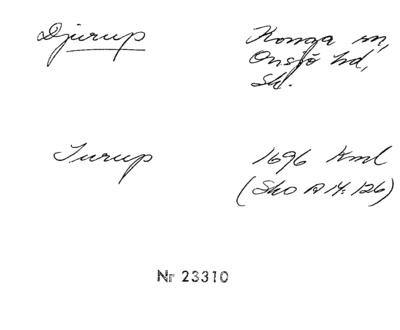 Djurup
Konga sn,
Onsjö hd,
Sk.
Jurup
1696 Kml
(Sko A 14:126)
Nr 23310